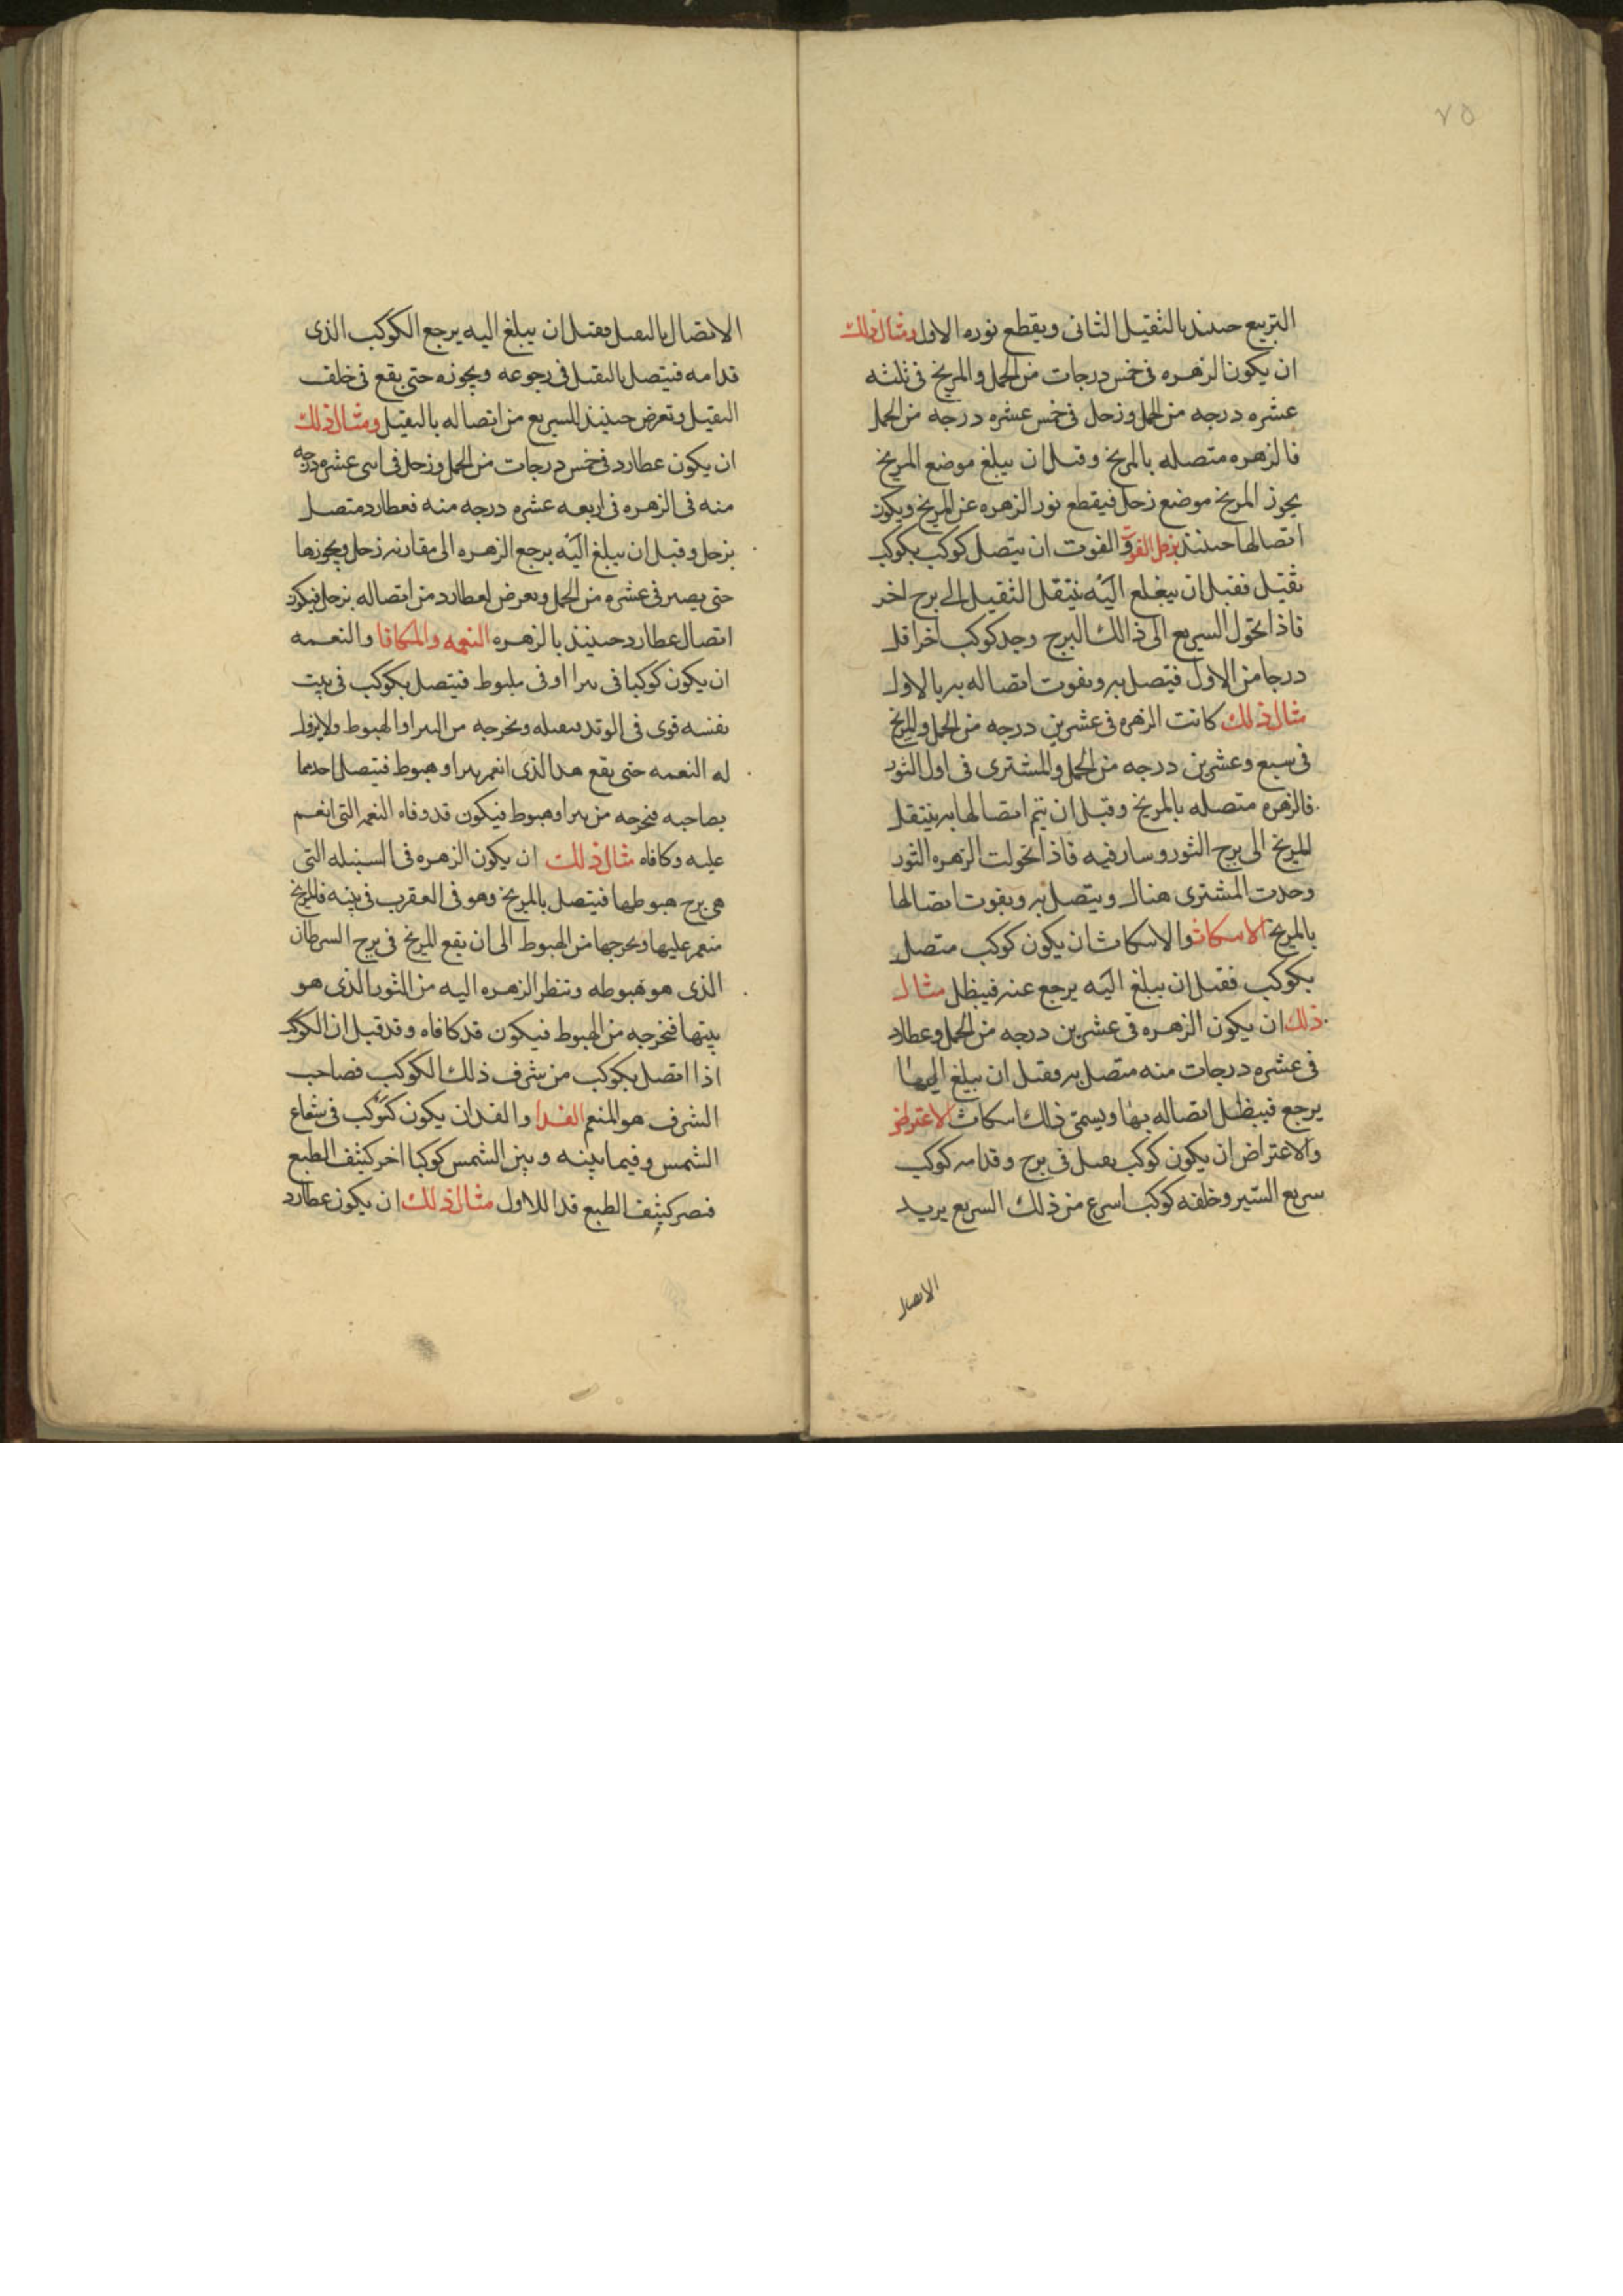 ٧٥
التربيع حينئذ بالثقيل الثانى ويقطع نوره الاول ومثال ذلك
ان يكون الزهره فى خمس درجات من الحمل والمريخ فى ثلثه
عشره درجه من الحمل وزحل فى خمس عشره درجه من الحمل
فالزهره متصله بالمريخ وقبل ان يبلغ موضع المريخ
يجوز المريخ موضع زحل فيقطع نور الزهره عن المريخ ويكون
اتصالها حينئذ بزحل الفوت والفوت ان يتصل كوكب بكوكب
ثقيل فقبل ان يبلغ اليه ينتقل الثقيل الى برج اخر
فاذا تحول السريع الى ذالك البرج وجد كوكب اخر اقل
درجا من الاول فيتصل به ويفوت اتصاله به بالاول
مثال ذلك كانت الزهره فى عشرين درجه من الحمل والمريخ
فى سبع وعشرين درجه من الحمل والمشترى فى اول الثور
فالزهره متصله بالمريخ وقبل ان يتم اتصالها به ينتقل
المريخ الى برج الثور وسار فيه فاذا تحولت الزهره الثور
وجدت المشترى هناك ويتصل به ويفوت اتصالها
بالمريخ الاسكاث والاسكاث ان يكون كوكب متصل
بكوكب فقبل ان يبلغ اليه يرجع عنه فيبطل مثال
ذلك ان يكون الزهره فى عشرين درجه من الحمل وعطارد
فى عشره درجات منه متصل به وقبل ان يبلغ اليها
يرجع فيبطل اتصاله بها ويسمى ذلك اسكاث الاعتراض
والاعتراض ان يكون كوكب ثقيل فى برج وقدامه كوكب
سريع السير وخلفه كوكب اسرع من ذلك السريع يريد
الاتصال
الاتصال بالثقيل فقبل ان يبلغ اليه يرجع الكوكب الذى
قدامه فيتصل بالثقيل فى رجوعه ويجوزه حتى يقع فى خلف
الثقيل وتعرض حينئذ للسريع من اتصاله بالثقيل ومثال ذلك
ان يكون عطارد فى خمس درجات من الحمل وزحل فى اثنى عشره درجه
منه فى الزهره فى اربعه عشره درجه منه فعطارد متصل
بزحل وقبل ان يبلغ اليه يرجع الزهره الى مقارنه زحل ويجوزها
حتى يصير فى عشره من الحمل ويعرض لعطارد من اتصاله بزحل فيكون
اتصال عطارد حينئذ بالزهره النعمه والمكافا والنعمه
ان يكون كوكبا فى بئرا او فى هبوط فيتصل بكوكب فى بيت
نفسه قوى فى الوتد فيقبله ويخرجه من البئر او الهبوط ولا يزول
له النعمه حتى يقع هذا الذى انعم بئرا وهبوط فيتصل احدهما
بصاحبه فيخرجه من بئر او هبوط فيكون قد وفاه النعمه التى انعم
عليه وكافاه مثال ذلك ان يكون الزهره فى السنبله التى
هى برج هبوطها فيتصل بالمريخ وهو فى العقرب فى بيته فالمريخ
منعم عليها ويخرجها من الهبوط الى ان يقع المريخ فى برج السرطان
الذى هو هبوطه وتنظر الزهره اليه من الثور الذى هو
بيتها فتخرجه من الهبوط فيكون قد كافاه وقد قيل ان الكوكب
اذا اتصل بكوكب من شرف ذلك الكوكب فصاحب
الشرف هو المنعم الفدا والفدا ان يكون كوكب فى شعاع
الشمس وفيما بينه وبين الشمس كوكبا اخر كثيف الطبع
فيصير كثيف الطبع فدا للاول مثال ذلك ان يكون عطارد